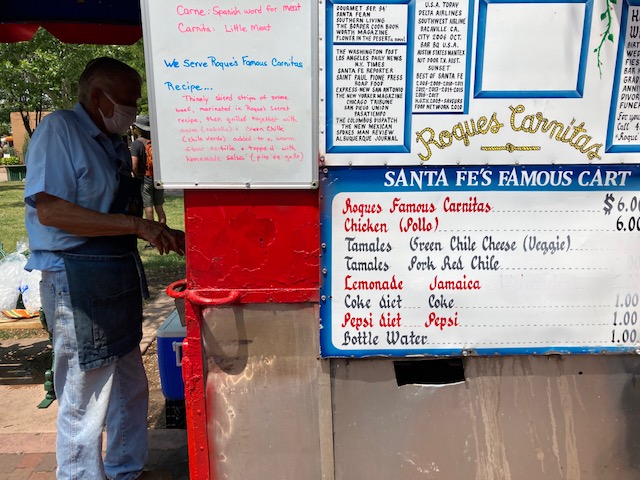 Carne: Spanish word for meat
Carnita: Little Meat
We Serve Roque's Famous Carnitas
Recipe...
Thinly sliced strips of prime
beef, marinated in Roque's Secret
recipe, then grilled together with
onion (cebolla) & Green Chile
(chile verde) added to a warm
flour tortilla & topped with
homemade salsa (pico de gallo)
GOURMET SEP. 94'
SANTA FEAN
SOUTHERN LIVING
THE BORDER COOK BOOK
WORTH MAGAZINE
FLOWER IN THE DESERT a novel
THE WASHINGTON POST
LOS ANGELES DAILY NEWS
N.Y. TIMES
SANTA FE REPORTER
SAINT PAUL PIONE PRESS
ROAD FOOD
EXPRESS-NEW SAN ANTONIO
THE NEW-YORKER MAGAZINE
CHICAGO TRIBUNE
SAN DIEGO UNION
PASATIEMPO
THE COLUMBUS DISPATCH
THE NEW MEXICAN
SPOKES MAN REVIEW
ALBUQUERQUE JOURNAL
U.S.A. TODAY
DELTA AIRLINES
SOUTHWEST AIRLINE
ARCAVILLE CA.
CITY 2006 OCT.
BAR BQ U.S.A.
AUSTIN STATES MANTEX
NUT POPR TX. HOST
SUNSET
BEST OF SANTA FE
FOOD NETWORK
Roques Carnitas
HIR
WED
FIES
GRAD
ANNIV
DIVOR
FUNER
For you
Call
SANTA FE'S FAMOUS CART
Roques Famous Carnitas $6.0
Chicken (Pollo) 6.00
Tamales Green Chile Cheese (Veggie)
Tamales Pork Red Chile
Lemonade Jamaica
Coke diet Coke 1.00
Pepsi diet Pepsi 1.00
Bottle Water 1.00